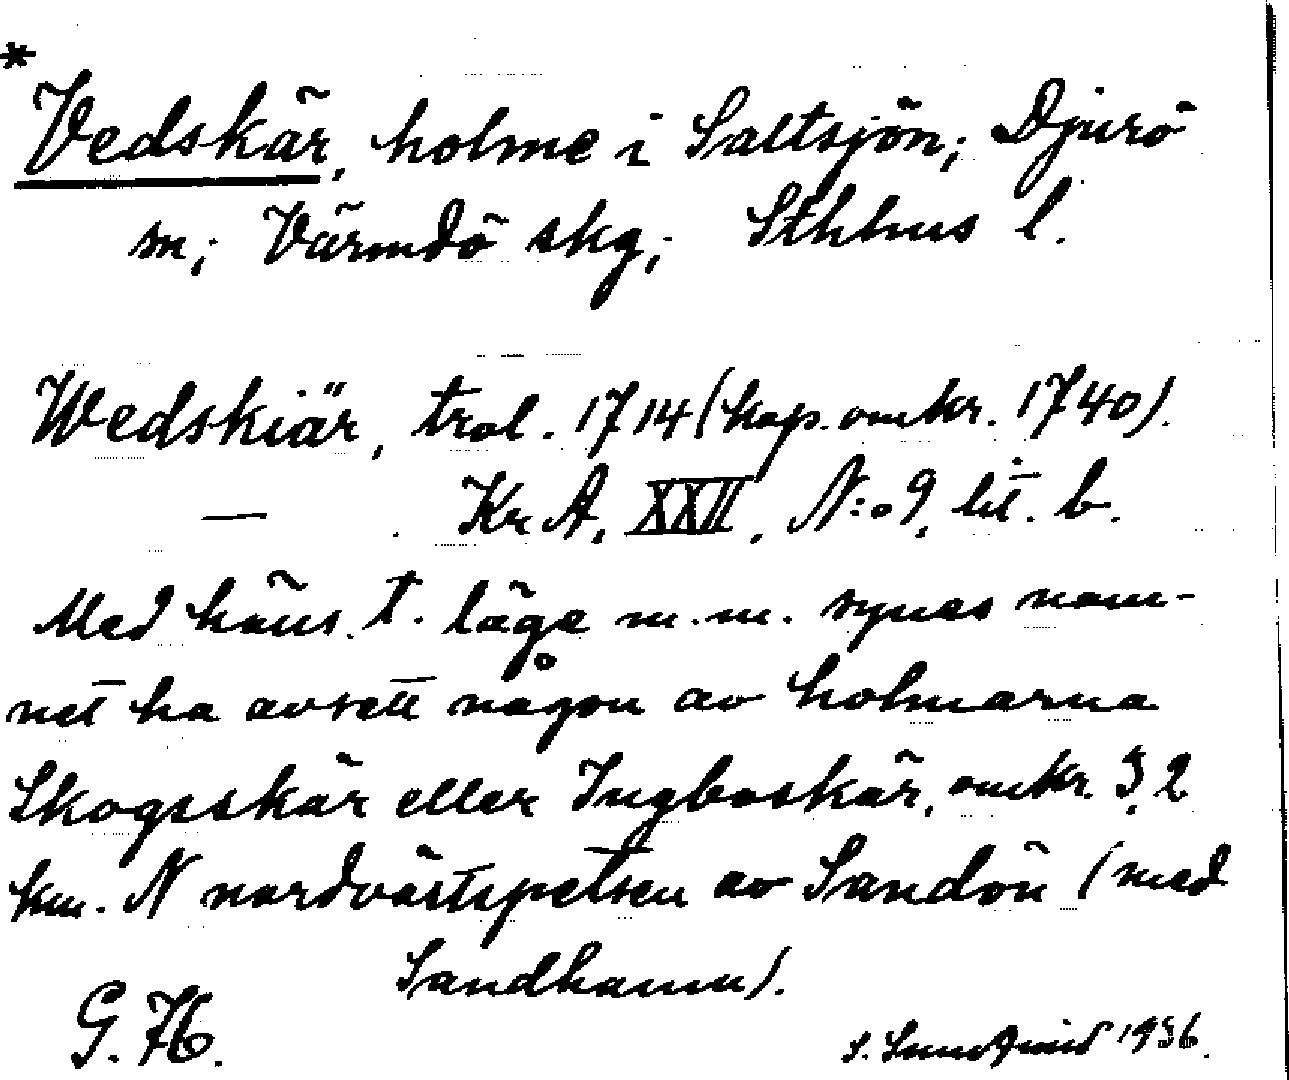 *
Vedskär, holme i Saltsjön; Djurö
sn; Värmdö skg; Sthlms l.
Wedskiär, trol. 1714 (kop. omkr. 1740).
— Kr A, XXII, N:o 9, lit. b.
Med häns. t. läge m.m. synes nam-
net ha avsett någon av holmarna
Skogsskär eller Ingboskär, omkr. 3,2
km. N nordvästspetsen av Sandön (med
Sandhamn).
G. H.
S. 1936.